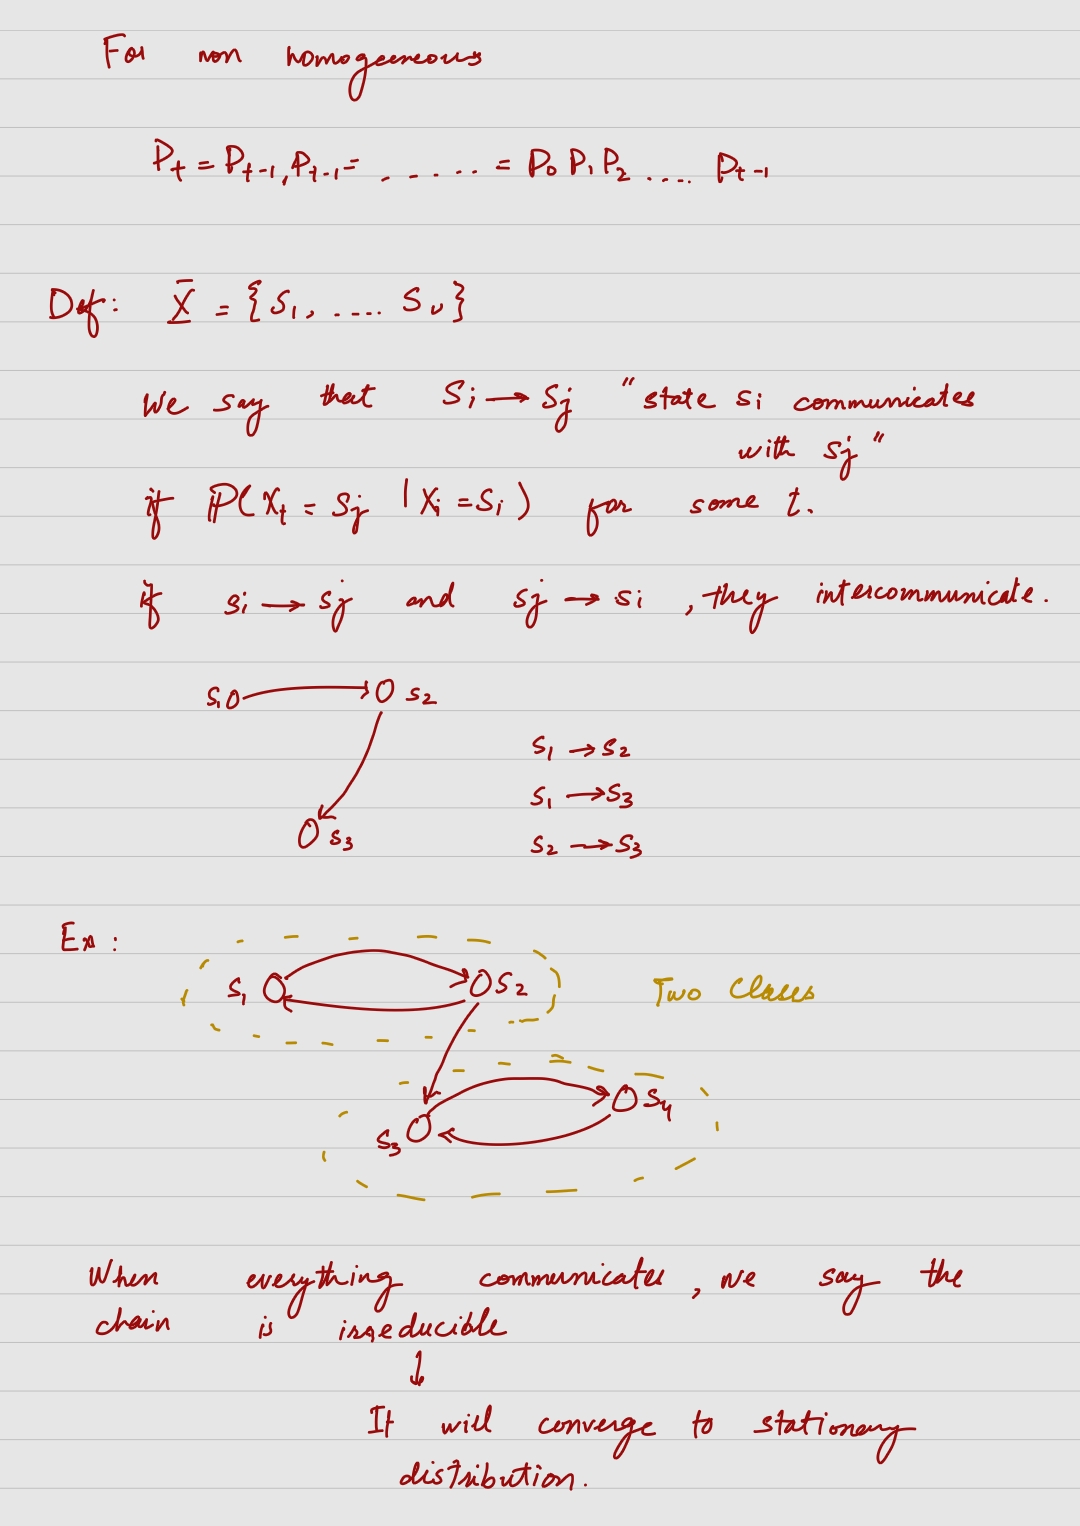 For non homogeeneous
P_t = P_{t-1}, P_{t-1} = . . . . . . = P_0 P_1 P_2 .... P_{t-1}
Def: X̄ = {S_1, .... S_ν}
We say that S_i → S_j "state s_i communicates
with s_j"
if P(X_t = S_j | X_i = S_i) for some t.
if s_i → s_j and s_j → s_i , they intercommunicate.
S_1 S_2
S_1 → S_2
S_1 → S_3
S_3
S_2 → S_3
Ex:
S_1 S_2 Two Classes
S_4
S_3
When everything communicates, we say the
chain is irreducible
↓
It will converge to stationary
distribution.